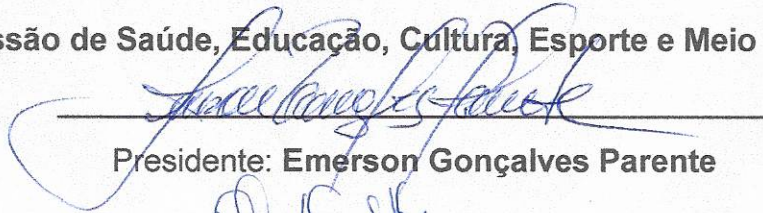 ssão de Saúde, Educação, Cultura, Esporte e Meio
Presidente: Emerson Gonçalves Parente